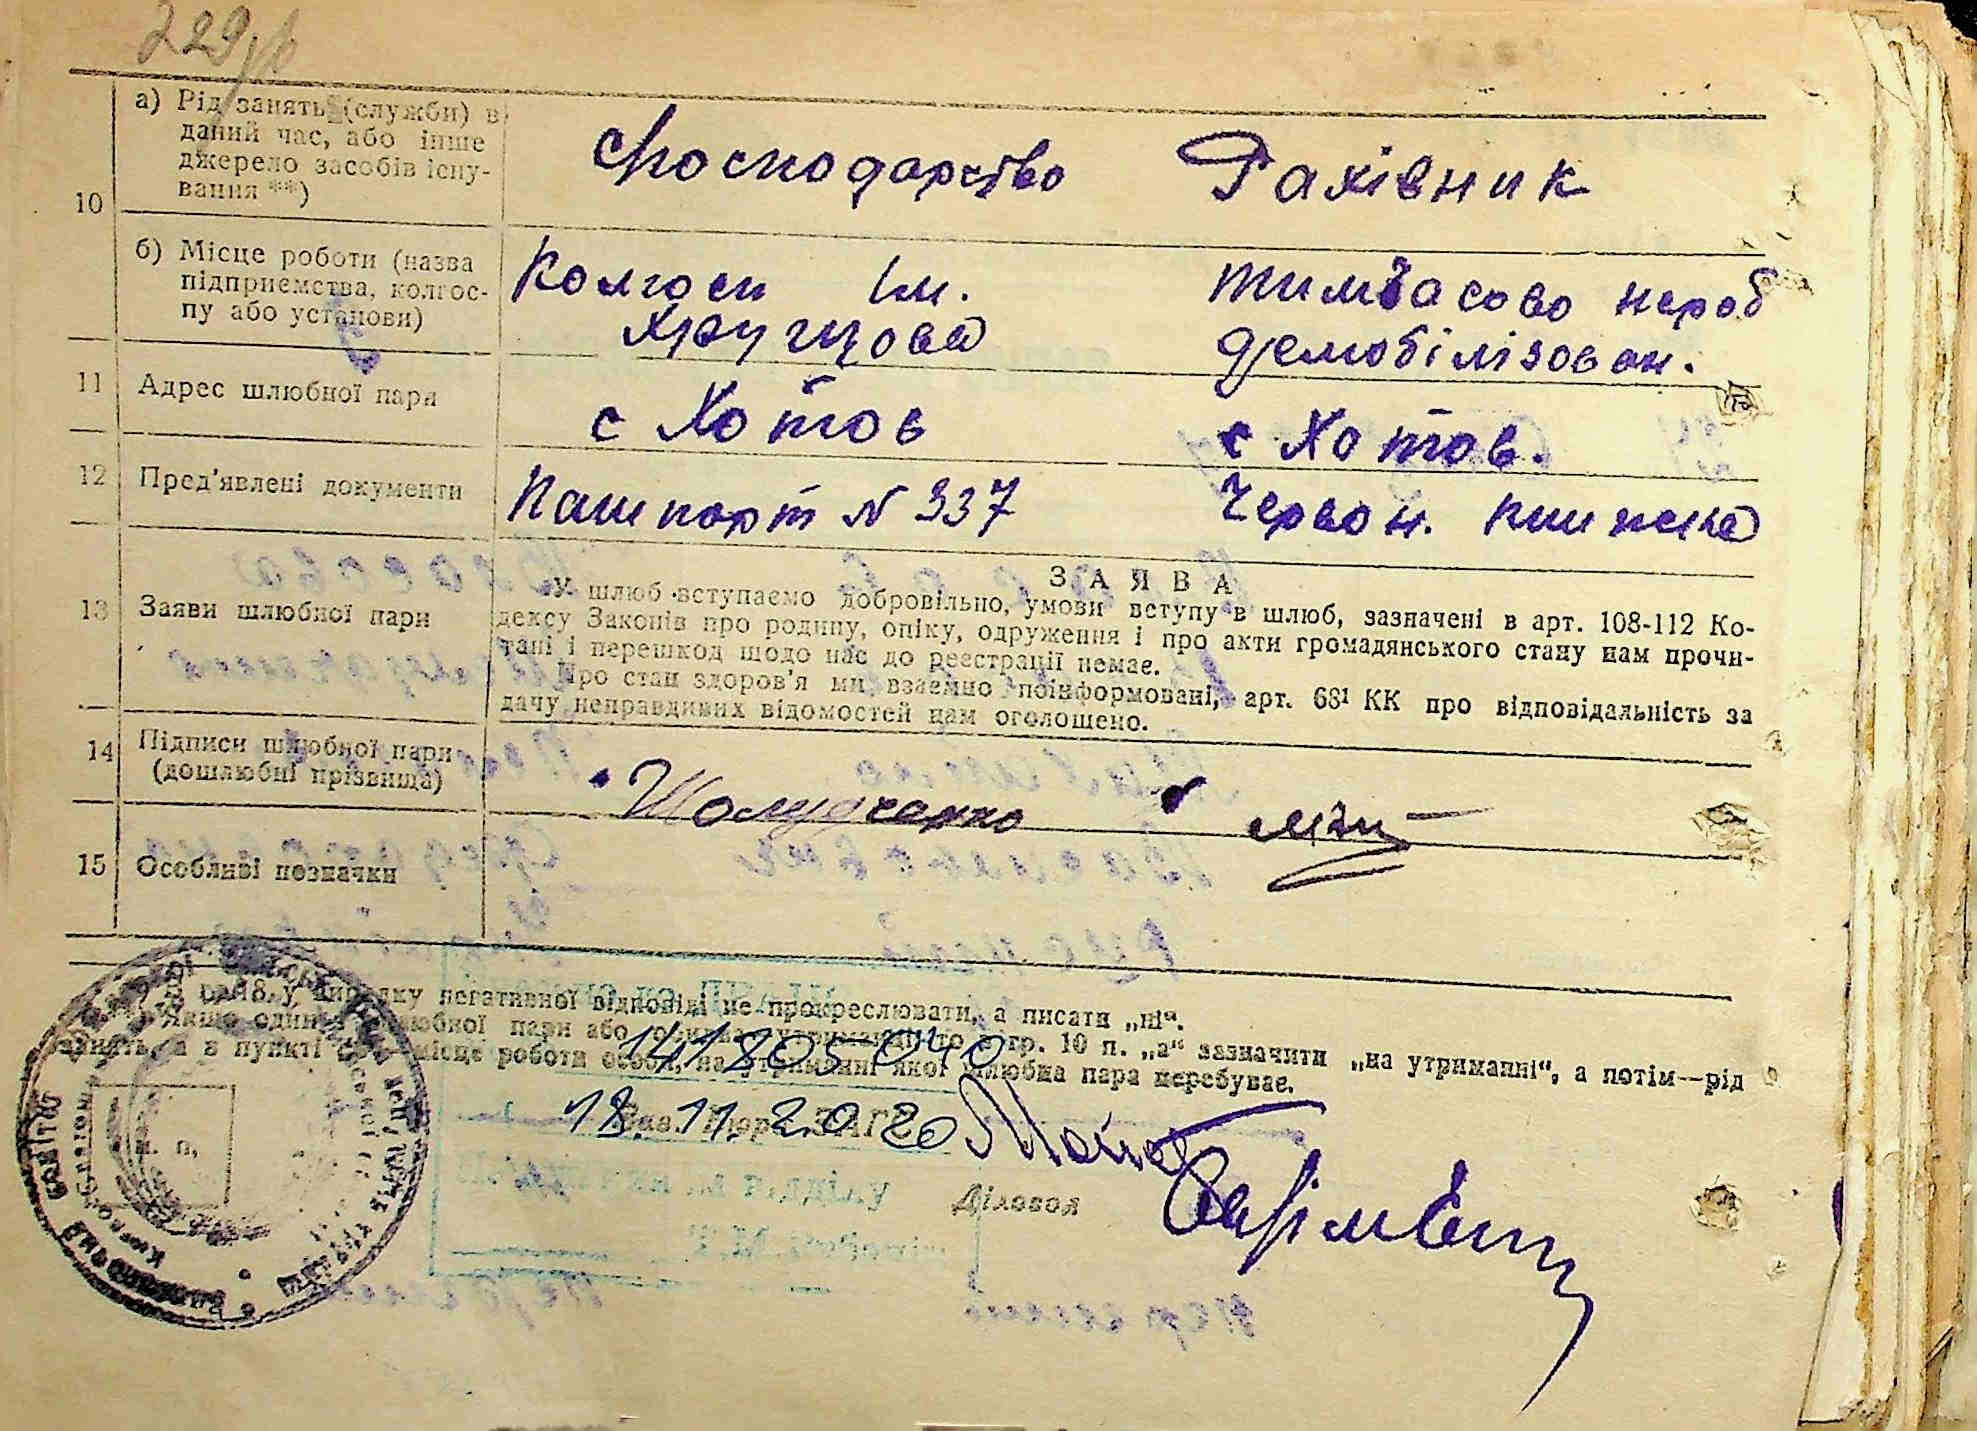 229
10
а) Рід занять (служби) в
даний час, або інше
джерело засобів існу-
вання **)
Господарство
Рахівник
б) Місце роботи (назва
підприємства, колгос-
пу або установи)
Колгосп Ім.
Хрущова
тимчасово нероб
демобілізован.
11
Адрес шлюбної пари
с Хотов
с Хотов.
12
Пред'явлені документи
Пашпорт N 337
Червон. книжка
13
Заяви шлюбної пари
ЗАЯВА
У шлюб вступаємо добровільно, умови вступу в шлюб, зазначені в арт. 108-112 Ко-
дексу Законів про родину, опіку, одруження і про акти громадянського стану нам прочи-
тані і перешкод щодо нас до реєстрації немає.
Про стан здоров'я ми взаємно поінформовані, арт. 68¹ КК про відповідальність за
дачу неправдивих відомостей нам оголошено.
14
Підписи шлюбної пари
(дошлюбні прізвища)
Шолудченко
15
Особливі позначки
у випадку негативної відповіді не прокреслювати, а писати „ні“.
Якщо один з шлюбної пари або гр. 10 п. „а“ зазначити „на утриманні“, а потім—рід
занять, а в пункті місце роботи особи, на утриманні якої шлюбна пара перебуває.
141805040
18.11.2020
Зав. Бюро ЗАГС
м. п.
Діловод